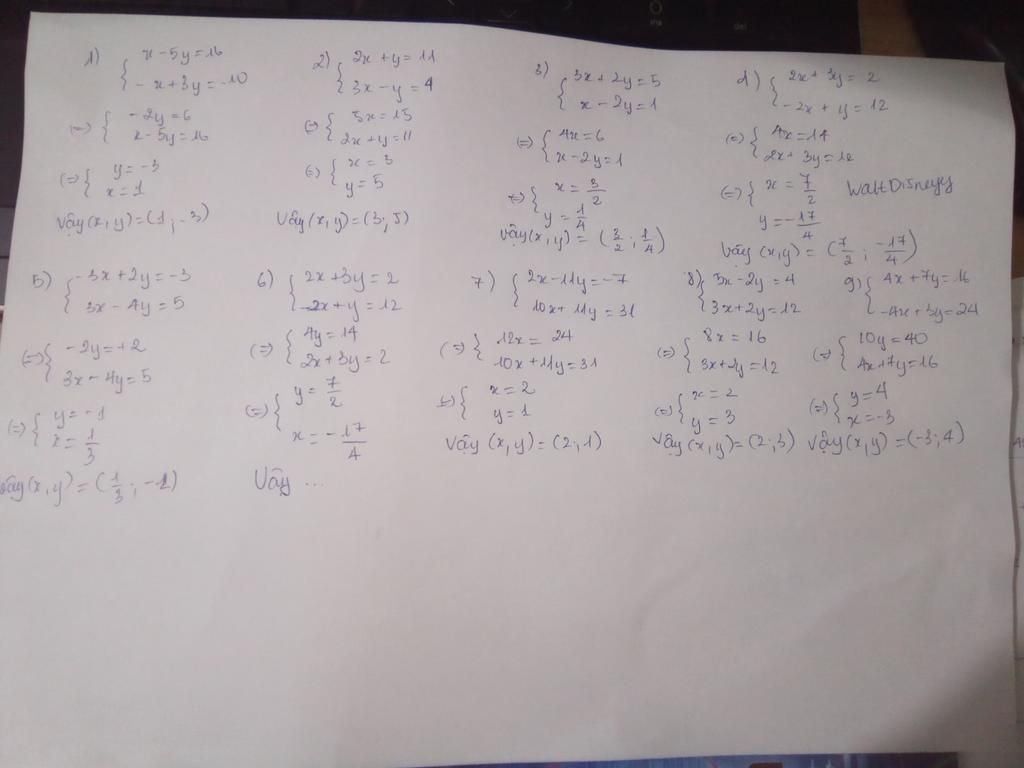 1) { x - 5y = 16
- x + 3y = -10
(=) { -2y = 6
x - 5y = 16
(=) { y = -3
x = 1
Vậy (x, y) = (1 ; -3)
2) { 2x + y = 11
3x - y = 4
(=) { 5x = 15
2x + y = 11
(=) { x = 3
y = 5
Vậy (x, y) = (3; 5)
3) { 3x + 2y = 5
x - 2y = 1
(=) { 4x = 6
x - 2y = 1
(=) { x = 3/2
y = 1/4
Vậy (x, y) = (3/2 ; 1/4)
4) { 2x + 3y = 2
-2x + y = 12
(=) { 4x = 14
2x + 3y = 12
(=) { x = 7/2
y = -17/4
WaltDisneyy
Vậy (x, y) = (7/2 ; -17/4)
5) { -3x + 2y = -3
3x - 4y = 5
(=) { -2y = +2
3x - 4y = 5
(=) { y = -1
x = 1/3
Vậy (x, y) = (1/3 ; -1)
6) { 2x + 3y = 2
-2x + y = 12
(=) { 4y = 14
2x + 3y = 2
(=) { y = 7/2
x = -17/4
Vậy ...
7) { 2x - 11y = -7
10x + 11y = 31
(=) { 12x = 24
10x + 11y = 31
(=) { x = 2
y = 1
Vậy (x, y) = (2; 1)
8) { 5x - 2y = 4
3x + 2y = 12
(=) { 8x = 16
3x + 2y = 12
(=) { x = 2
y = 3
Vậy (x, y) = (2; 3)
9) { 4x + 7y = 16
-4x + 3y = 24
(=) { 10y = 40
4x + 7y = 16
(=) { y = 4
x = -3
Vậy (x, y) = (-3; 4)